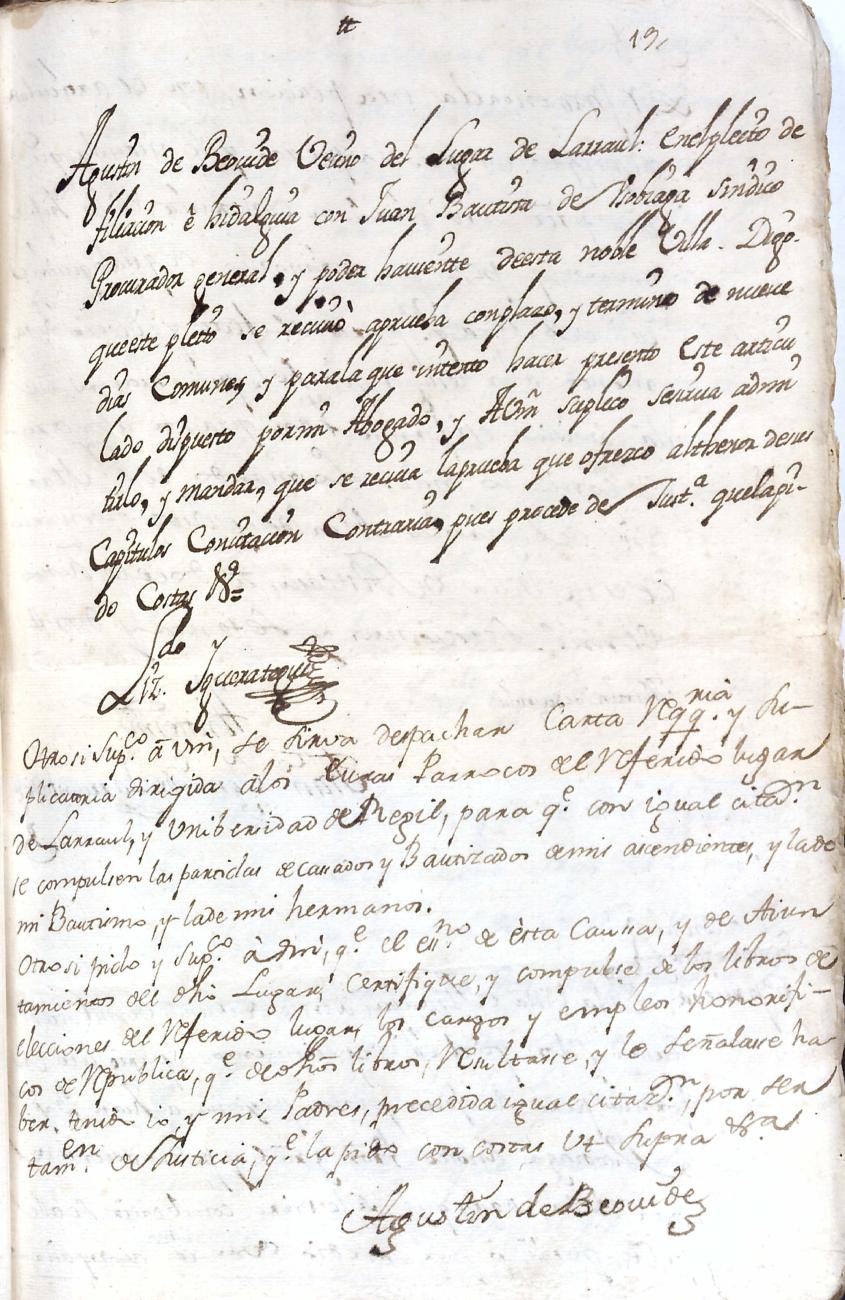 tt
19,
Agustin de Beovide Vecino del Lugar de Larraul: enelpleito de
filiacion è hidalguia con Juan Bautista de sindico
Procurador general, y poder haviente deesta noble Villa. Digo.
queeste pleito se reciuio aprueba conplazo, y termino de nueve
dias Comunes, y parala que intento hacer presento este articu
lado dispuesto pormi Abogado, y AVm suplico seirva admi
tirlo, y mandar, que se reciva laprueba que ofrezco althenor desus
Capitulos Concitacion Contraria, pues procede de Just.ª quelapi-
do Costas &ª=
Ldo
Liz. Y
Otrosi sup.co â vm, se sirva despachar Carta Reqq.ria y su-
plicatoria dirigida alos Curas Parrocos del Referido lugar
de Larraul, y Unibersidad de Regil, para q.e con igual citaz.n
se compulsen las partidas decasados y Bautizados demis ascendientes, y lade
mi Bautismo, y lade mi hermanos.
Otrosi pido y sup.co à Vm, q.e el ess.no de èsta Caussa, y de Aiun
tamientos del dho Lugar, certifique, y compulse de los libros de
elecciones del Referido lugar, los cargos y empleos honorifi-
cos de Republica, q.e dedhos libros, Resultasse, y le señalasse ha
ber tenido io, y mis Padres, precedida igual citaz.on, por ser
tam.en de Justicia, q.e la pido con costas Ut supra &ª
Agustin de Beovide